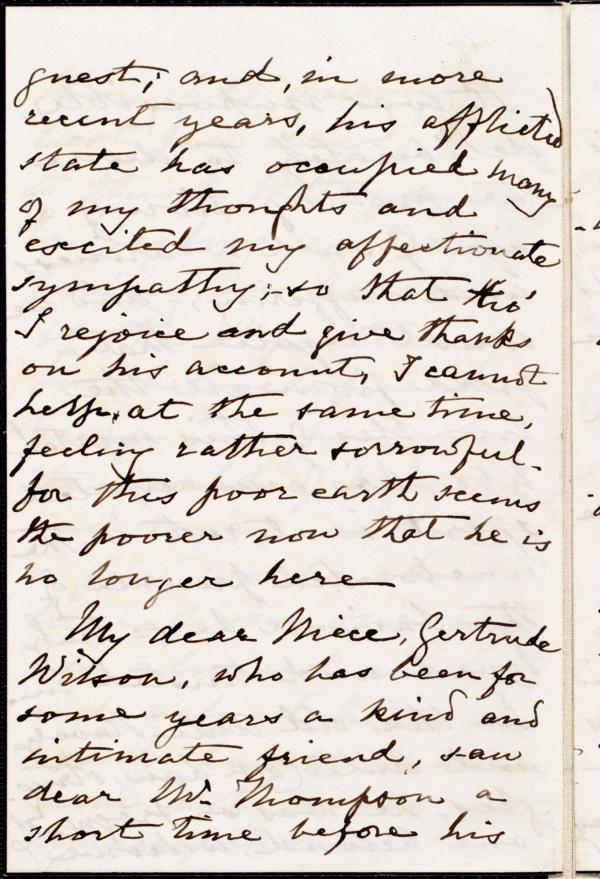 guest; and, in more
recent years, his afflicted
state has occupied many
of my thoughts and
excited my affectionate
sympathy;- so that tho'
I rejoice and give thanks
on his account, I cannot
help, at the same time,
feeling rather sorrowful-
for this poor earth seems
the poorer now that he is
no longer here—
My dear Niece, Gertrude
Wilson, who has been for
some years a kind and
intimate friend, saw
dear Mr. Thompson a
short time before his